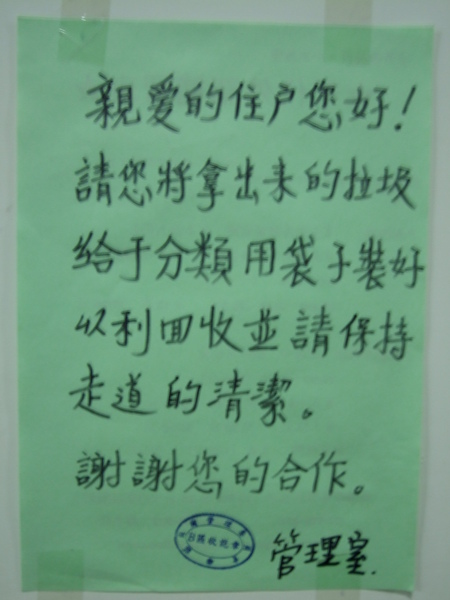 親爱的住户您好!
請您將拿出来的垃圾
給于分類用袋子裝好
以利回收並請保持
走道的清潔。
謝謝您的合作。
管理室.